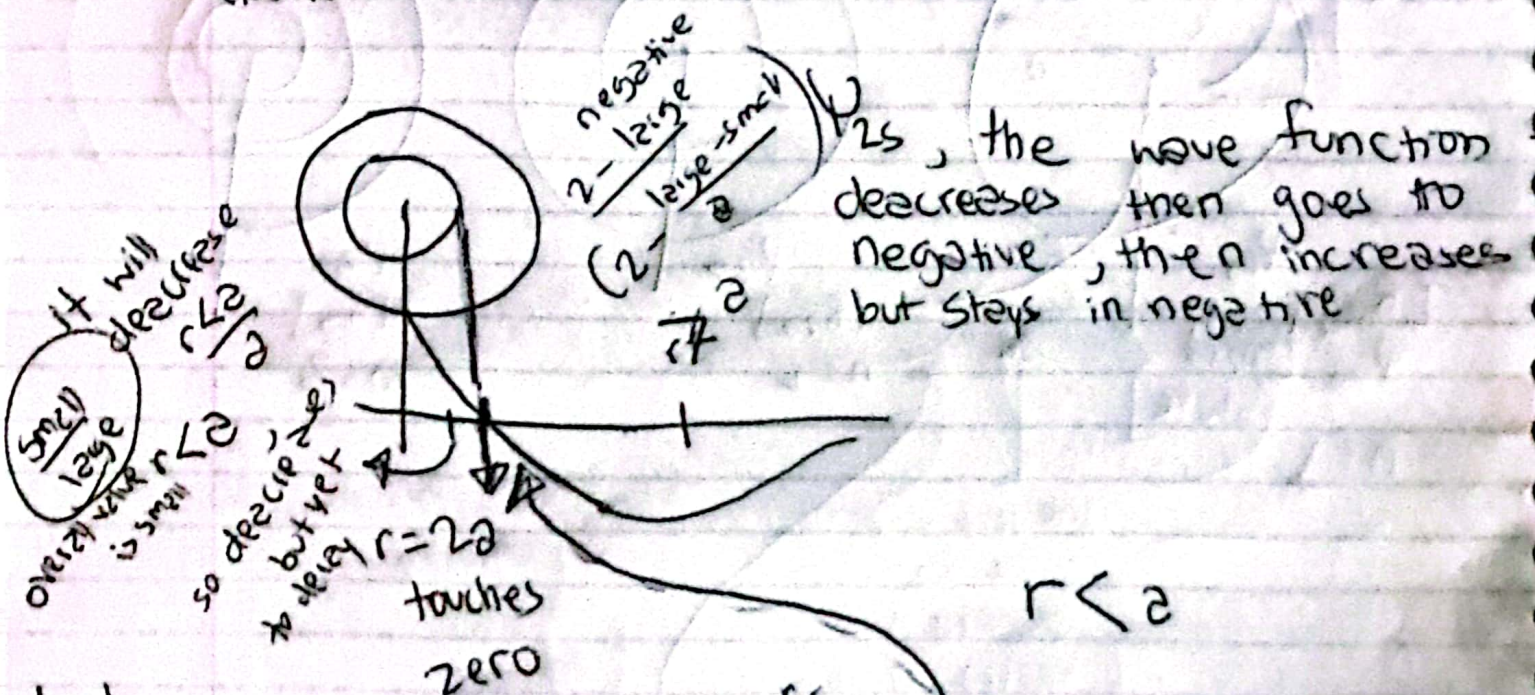 negative
2 - large
large - small
a
(2 -
ψ2s, the wave function
deacreases then goes to
negative, then increases
but stays in negative
it will
deacrease
r<a
a
small
large
overall value
is small
r<a
but yet
r=2a
touches
zero
r<a